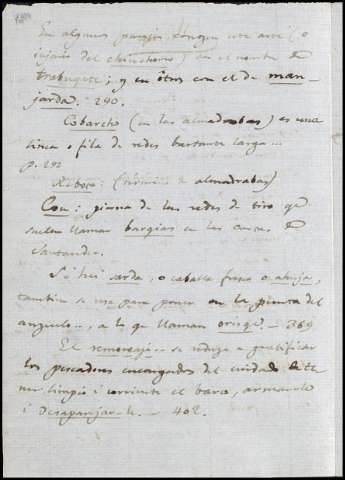 En algunos parajes conocen este arte (o
injano del chinchorro) con el nombre de
trabuquete; y en otros con el de man-
jarda. 290.
Cobarcho (en las almadrabas) es una
linea o fila de redes bastante larga...
p. 292
(término de almadrabas)
Coa: pierna de las redes de tiro qe
suelen llamar bargias en las costas de
Santander.
Si hai sarda, o caballa fresca o aluja,
tambien se usa para poner en la punta del
anzuelo .., a lo qe llaman 369
El remensaje.. se reduze a gratificar
los pescadores encargados del cuidado de te-
ner limpio i corriente el barco, armarle
i desaparejarle. - 402.